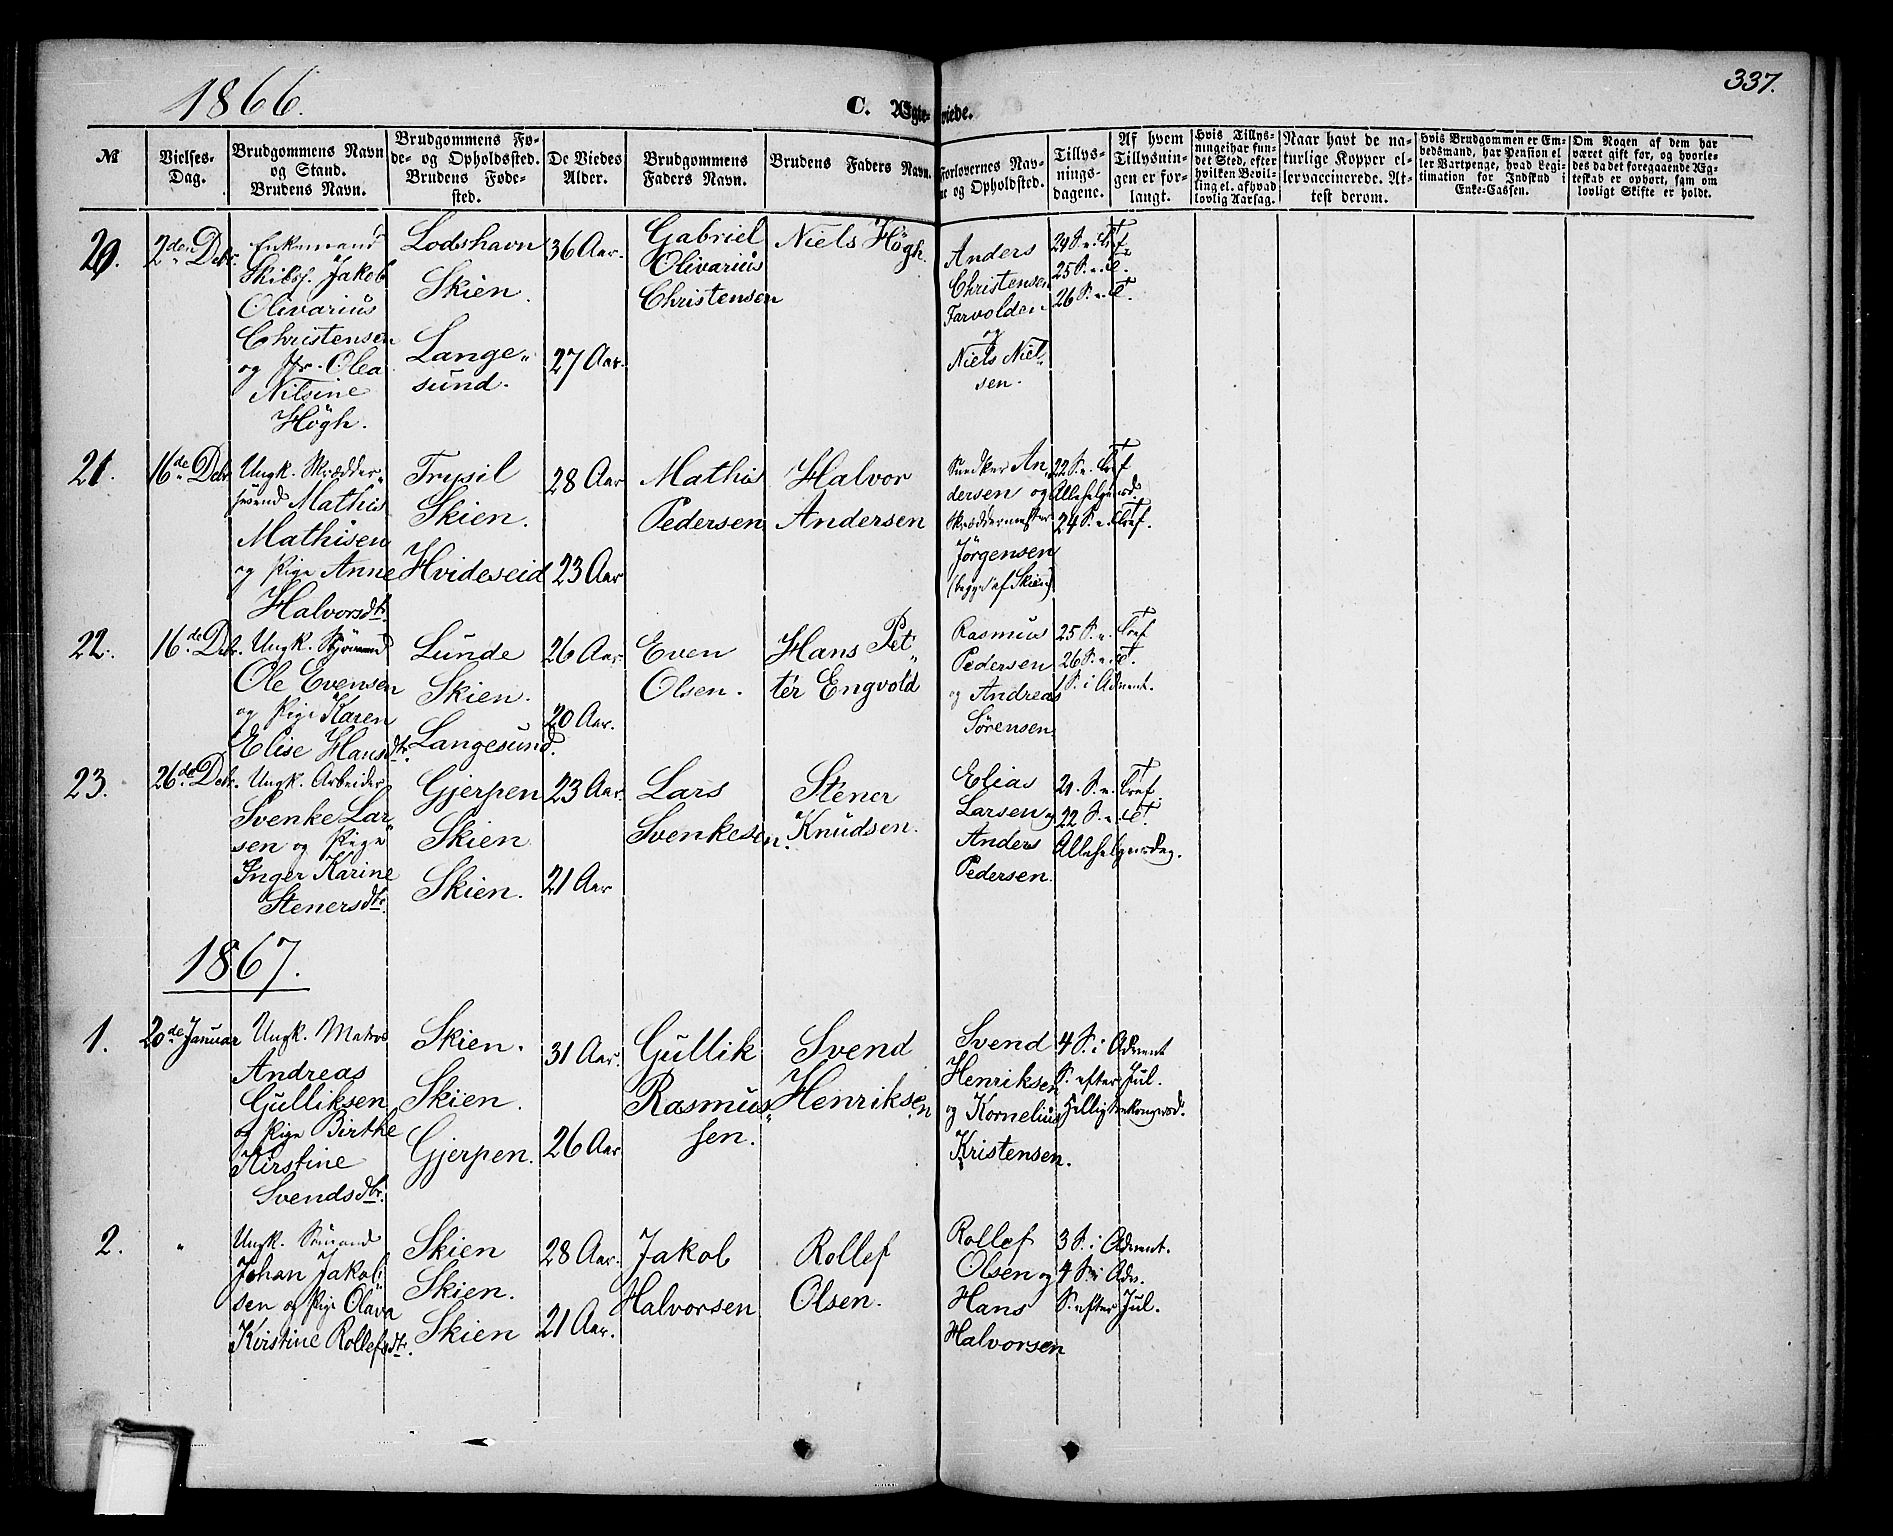 1866.
C. Ægte-viede.
337.
№
Vielses-
Dag.
Brudgommens Navn
og Stand.
Brudens Navn.
Brudgommens Fø-
de- og Opholdssted.
Brudens Føde-
sted.
De Viedes
Alder.
Brudgommens
Faders Navn.
Brudens Faders Navn.
Forlovernes Nav-
ne og Opholdsted.
Tillys-
nings-
dagene.
Af hvem
Tillysnin-
gen er for-
langt.
Hvis Tillys-
ningei har fun-
det Sted, efter
hvilken Bevil-
ling el. af hvad
lovlig Aarsag.
Naar havt de na-
turlige Kopper el-
ler vaccinerede. At-
test derom.
Hvis Brudgommen er Em-
bedsmand, har Pension el
ler Vartpenge, hvad Legi-
timation for Indskud i
Enke-Cassen.
Om Nogen af dem har
været gift før, og hvorle-
des da det foregaaende Æg-
teskab er ophørt, sam om
lovligt Skifte er holdt.
20.
2den Debr.
Enkemand
Skibsf. Jakob
Olivarius
Christensen
og Jfr. Olea
Nilsine
Högh.
Lodshavn
Skien.
Lange-
sund.
36 Aar.
27 Aar.
Gabriel
Olivarius
Christensen
Niels Högh.
Anders
Christensen
Farvolden
og
Niels Niel-
sen.
24 S. e. Tref.
25 S. e. T.
26 S. e. T.
21.
16de Debr.
Ungk. Skrædder-
svend Mathis
Mathisen
og Pige Anne
Halvorsdtr.
Trysil
Skien.
Hvideseid
28 Aar
23 Aar
Mathis
Pedersen
Halvor
Andersen
An-
dersen og
Skræddermester
Jörgensen
(begge af Skien)
22 S. e. Tref
Allehelgensd.
24 S. e. Tref.
22.
16de Debr.
Ungk. Sjömand
Ole Evensen
og Pige Karen
Elise Hansdtr.
Lunde
Skien.
Langesund.
26 Aar.
20 Aar.
Even
Olsen.
Hans Pet-
ter Engvold
Rasmus
Pedersen
og Andreas
Sörensen
25 S. e. Tref
26 S. e. T.
1 S. i Advent.
23.
26de Debr.
Ungk. Arbeider
Svenke Lar-
sen og Pige
Inger Karine
Stenersdtr.
Gjerpen
Skien
Skien.
23 Aar.
21 Aar
Lars
Svenkesen.
Stener
Knudsen.
Elias
Larsen og
Anders
Pedersen.
21. S. e. Tref
22 S. e. T.
Allehelgensdag.
1867.
1.
20de Januar
Ungk. Matros
Andreas
Gulliksen
og Pige Birthe
Kirstine
Svendsdtr.
Skien.
Skien.
Gjerpen.
31 Aar.
26 Aar.
Gullik
Rasmus-
sen.
Svend
Henriksen
Svend
Henriksen
og Kornelius
Kristensen.
4 S. i Advent
S. efter Jul.
Hellig trekongersd.
2.
"
Ungk. Sömand
Johan Jakob-
sen og Pige Olava
Kirstine Rollefsdtr.
Skien
Skien.
Skien
28 Aar.
21 Aar.
Jakob
Halvorsen
Rollef
Olsen.
Rollef
Olsen og
Hans
Halvorsen
3 S. i Advent.
4 S. i Adv.
S. efter Jul.